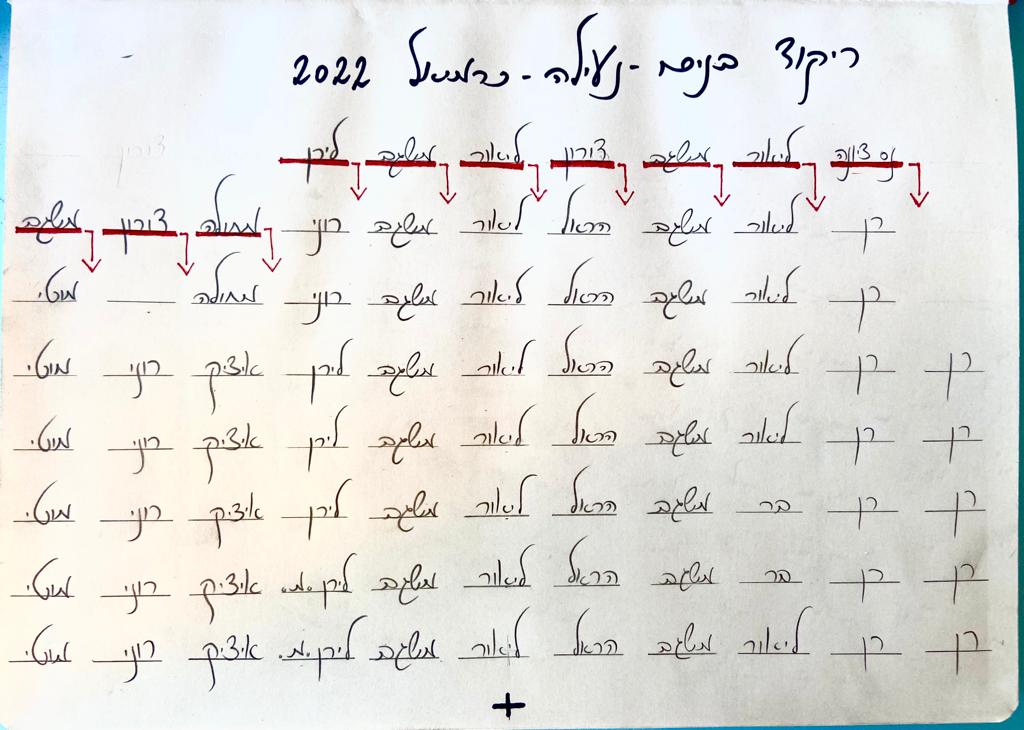 ריקוד בניסח - נעילה - כרמיאל 2022
נס ציונה ליאור משגב דורון ליאור משגב לירן
רן ליאור משגב הראל ליאור משגב רוני מחולה דורון משגב
רן ליאור משגב הראל ליאור משגב רוני מחולה מוטי
רן רן ליאור משגב הראל ליאור משגב לירן איציק רוני מוטי
רן רן ליאור משגב הראל ליאור משגב לירן איציק רוני מוטי
רן רן בר משגב הראל ליאור משגב לירן איציק רוני מוטי
רן רן בר משגב הראל ליאור משגב לירן .מ. איציק רוני מוטי
רן רן ליאור משגב הראל ליאור משגב לירן .מ. איציק רוני מוטי
+